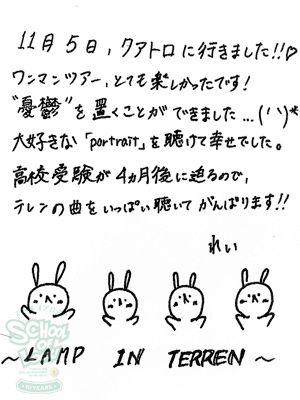 11月5日,クアトロに行きました!!♡
ワンマンツアー,とても楽しかったです!
"憂鬱"を置くことができました...(ˈ꒳ˈ)*
大好きな「portrait」を聴けて幸せでした。
高校受験が4ヵ月後に迫るので,
テレンの曲をいっぱい聴いてがんばります!!
れい
SCHOOL OF LOCK!
10 YEARS
~LAMP IN TERREN~